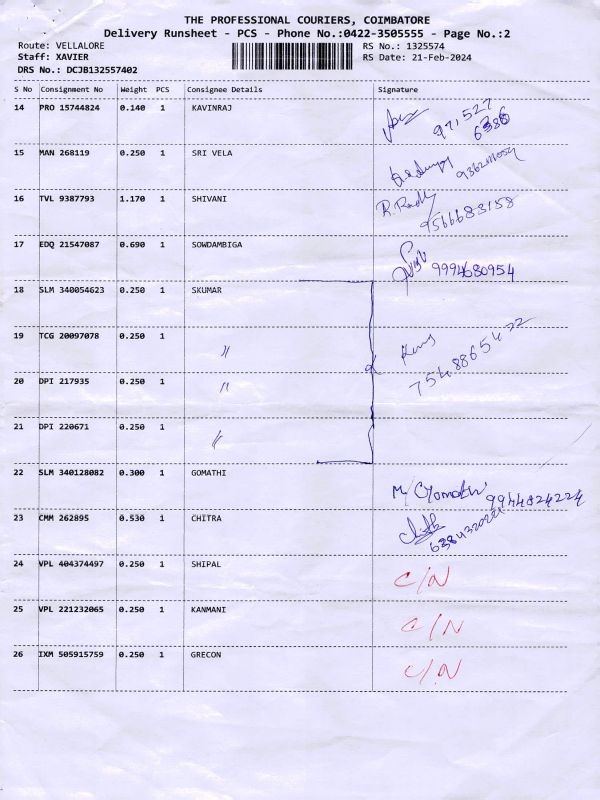 THE PROFESSIONAL COURIERS, COIMBATORE
Delivery Runsheet - PCS - Phone No.:0422-3505555 - Page No.:2
Route: VELLALORE RS No.: 1325574
Staff: XAVIER RS Date: 21-Feb-2024
DRS No.: DCJB132557402
S No Consignment No Weight PCS Consignee Details Signature
14 PRO 15744824 0.140 1 KAVINRAJ
15 MAN 268119 0.250 1 SRI VELA
16 TVL 9387793 1.170 1 SHIVANI
9566683158
17 EDQ 21547087 0.690 1 SOWDAMBIGA 9994680954
18 SLM 340054623 0.250 1 SKUMAR
19 TCG 20097078 0.250 1 〃
7548865422
20 DPI 217935 0.250 1 〃
21 DPI 220671 0.250 1 〃
22 SLM 340128082 0.300 1 GOMATHI
9944824224
23 CMM 262895 0.530 1 CHITRA
24 VPL 404374497 0.250 1 SHIPAL C/N
25 VPL 221232065 0.250 1 KANMANI C/N
26 IXM 505915759 0.250 1 GRECON C/N